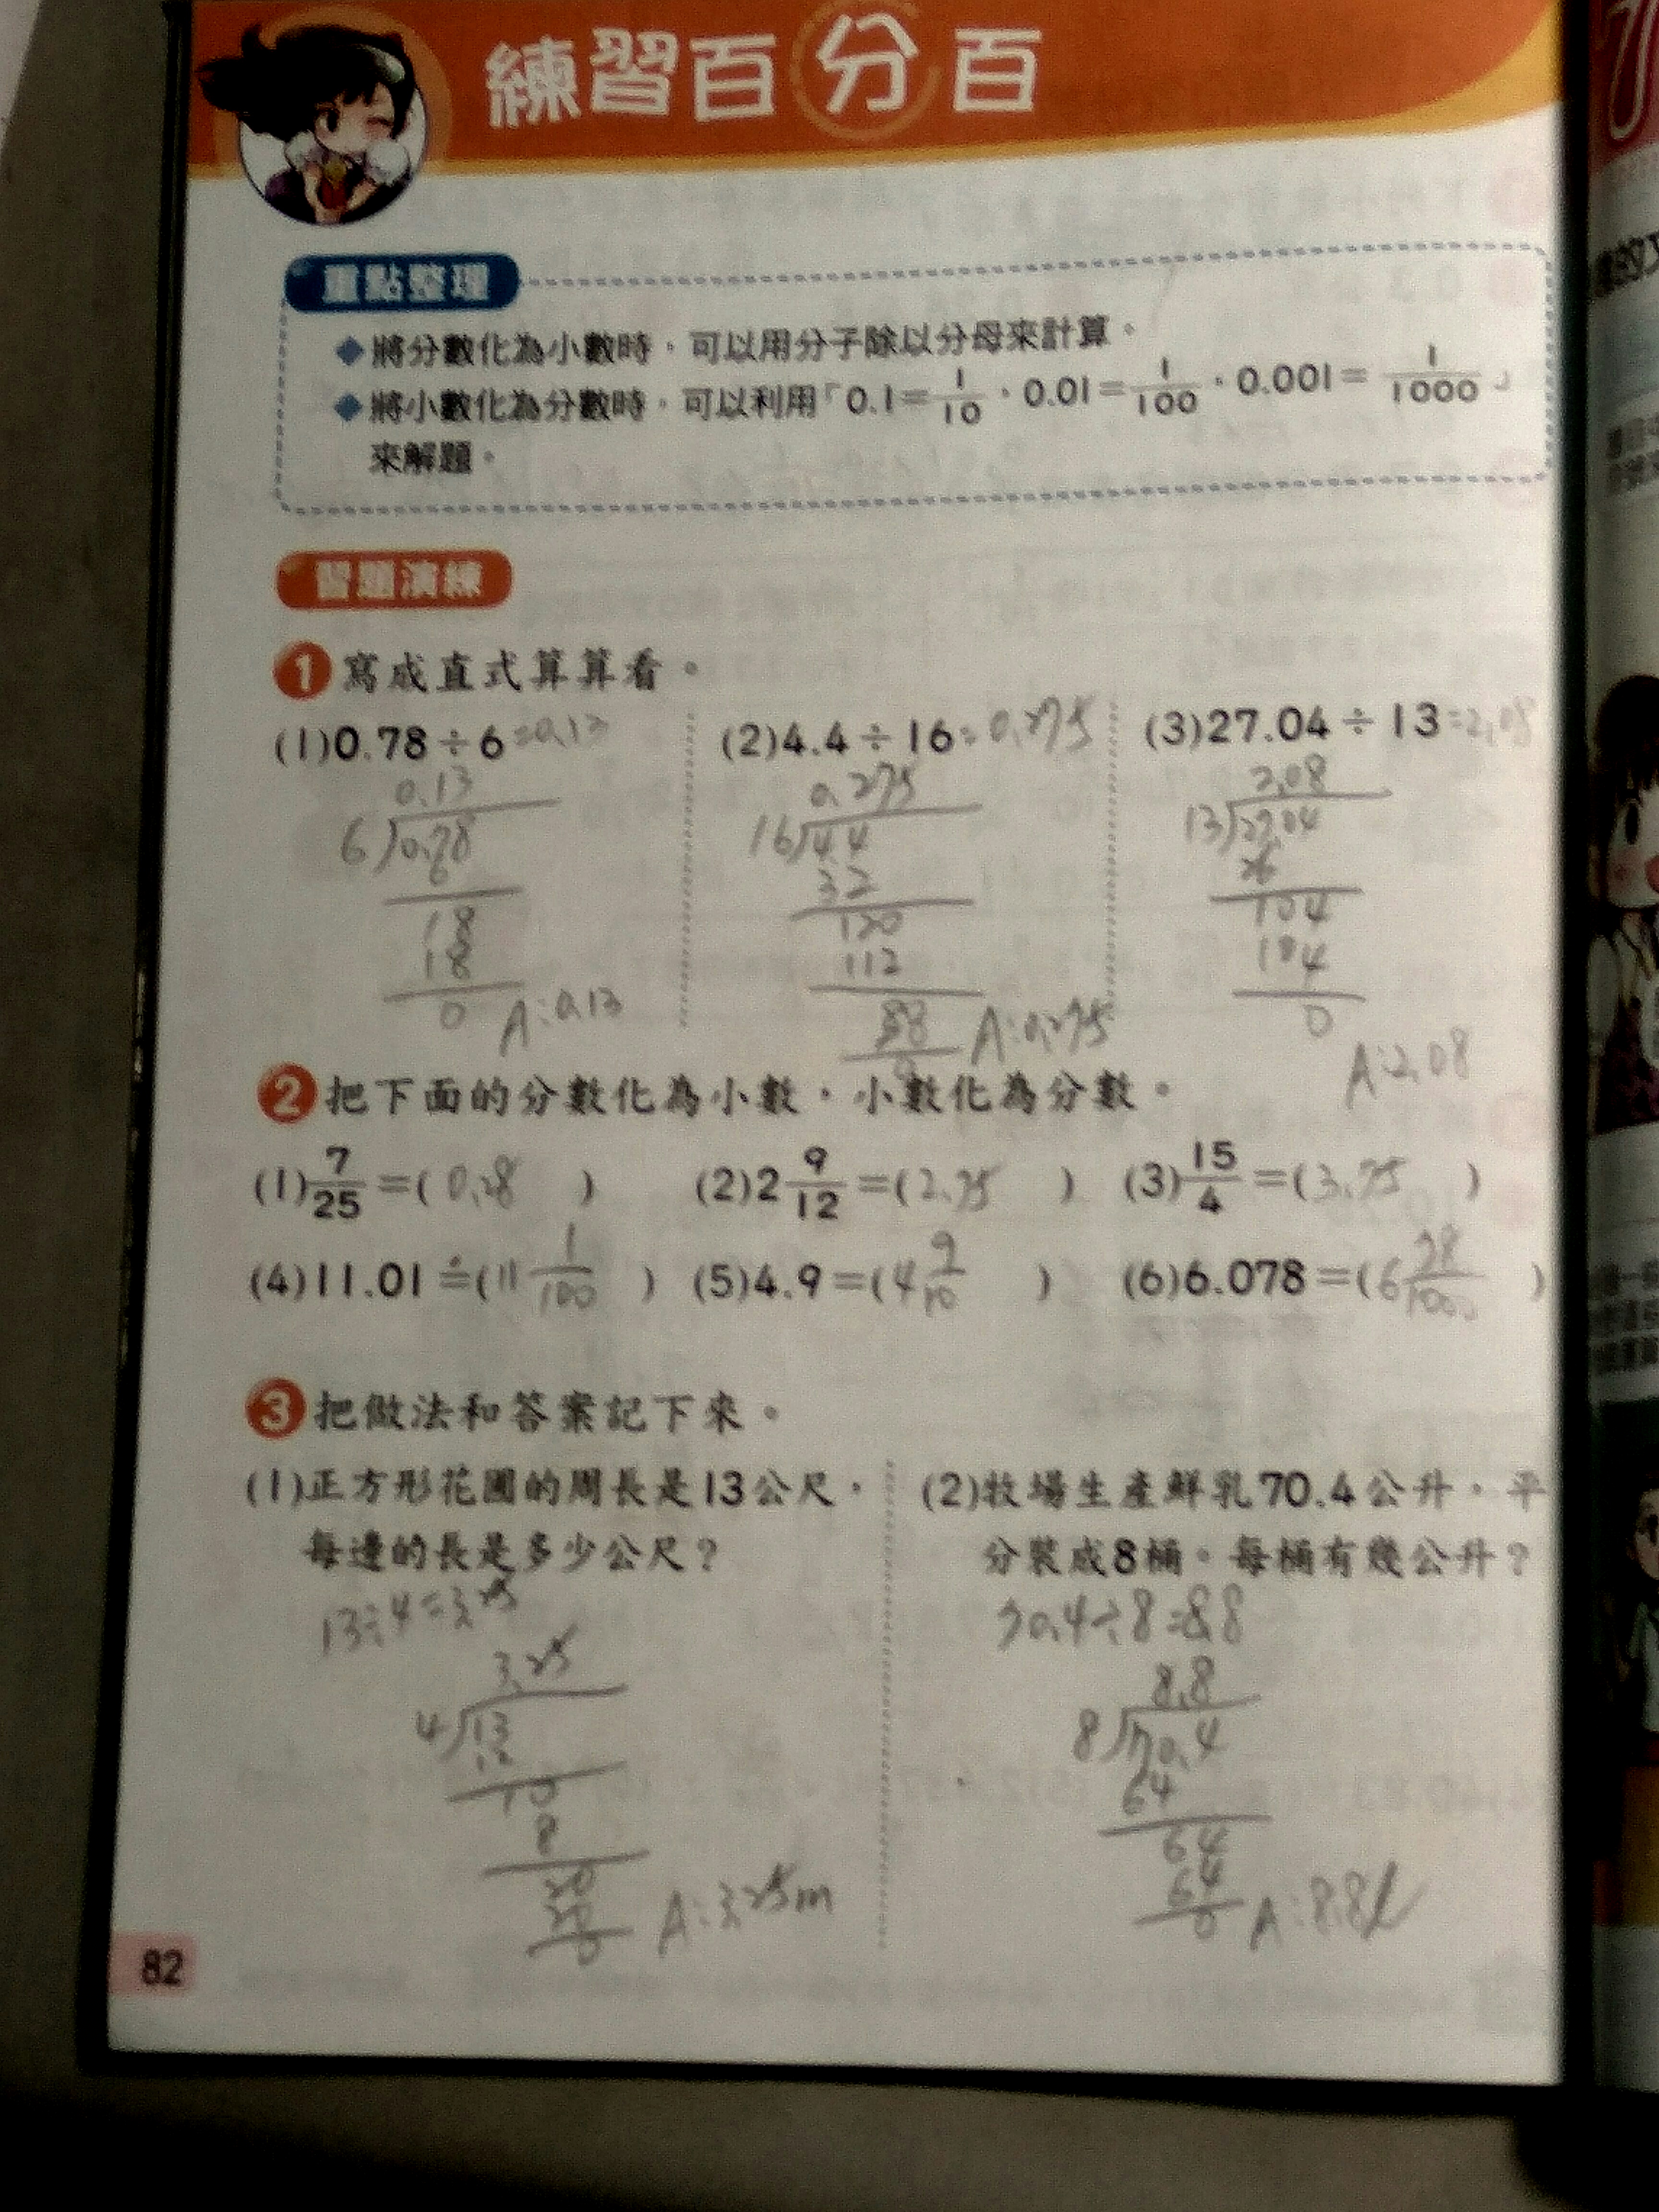 練習百分百
重點整理
◆將分數化為小數時，可以用分子除以分母來計算。
◆將小數化為分數時，可以利用「0.1=1/10，0.01=1/100，0.001=1/1000」
來解題。
習題演練
1 寫成直式算算看。
(1)0.78÷6=0.13 (2)4.4÷16=0.275 (3)27.04÷13=2.08
0.13
6)0.78
6
18
18
0
A:0.13
0.275
16)4.4
32
120
112
0
A:0.275
2.08
13)27.04
26
104
104
0
A:2.08
2 把下面的分數化為小數，小數化為分數。
(1)7/25=(0.28) (2)2 9/12=(2.75) (3)15/4=(3.75)
(4)11.01=(11 1/100) (5)4.9=(4 9/10) (6)6.078=(6 78/1000)
3 把做法和答案記下來。
(1)正方形花圃的周長是13公尺，
每邊的長是多少公尺？
13÷4=3.25
3.25
4)13
12
10
8
20
20
0
A:3.25m
(2)牧場生產鮮乳70.4公升，平
分裝成8桶。每桶有幾公升？
70.4÷8=8.8
8.8
8)70.4
64
64
64
0
A:8.8l
82